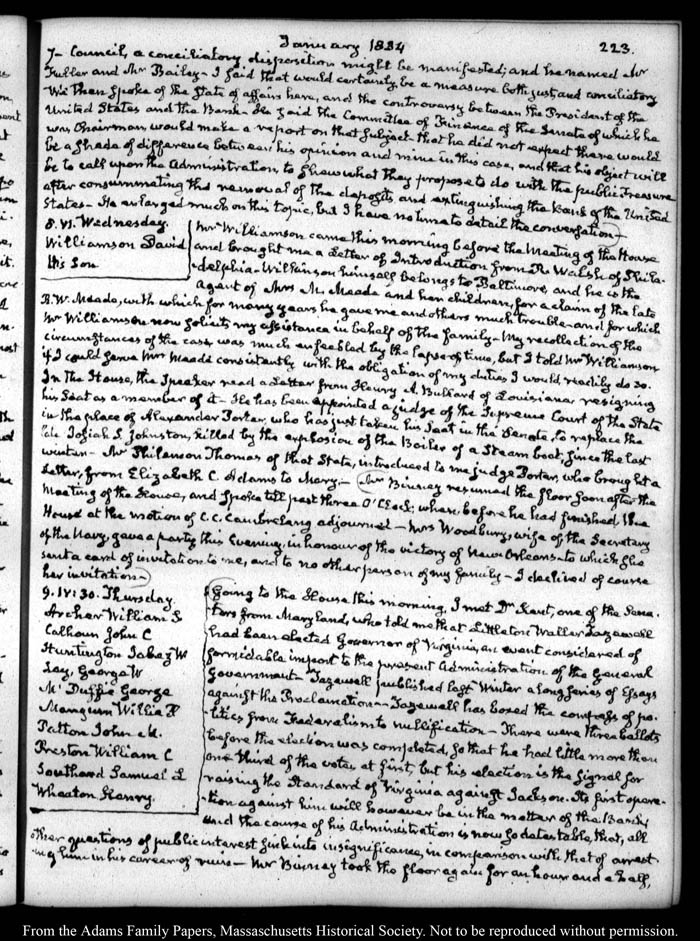 January 1834
223.
J- Council, a conciliatory disposition might be manifested; and he named Mr
Fuller and Mr Bailey- I said that would certainly be a measure both just and conciliatory
We then spoke of the state of affairs here, and the controversy between the President of the
United States and the Bank- He said the Committee of Finance of the Senate of which he
was Chairman would make a report on that subject- that he did not expect there would
be a shade of difference between his opinion and mine in this case, and that his object will
be to call upon the Administration, to shew what they propose to do with the public Treasure
after consummating the removal of the deposits and extinguishing the Bank of the United
States- He enlarged much on this topic, but I have no time to detail the conversation-
8. VI. Wednesday.
Williamson David
His Son
Mr Williamson came this morning before the Meeting of the House
and brought me a Letter of Introduction from Mr Walsh of Phila-
-delphia- Wilkinson himself belongs to Baltimore, and he is the
Agent of Mrs M. Meade and her children, for a claim of the late
R. W. Meade, with which for many years he gave me and others much trouble- and for which
Mr Williamson now solicits my assistance in behalf of the family- My recollection of the
circumstances of the case was much enfeebled by the lapse of time, but I told Mr Williamson
if I could serve Mrs Meade consistently with the obligation of my duties I would readily do so.
In the House, the Speaker read a Letter from Henry A. Bullard of Louisiana resigning
his Seat as a member of it- He has been appointed a judge of the Supreme Court of the State
in the place of Alexander Porter, who has just taken his seat in the Senate, to replace the
late Josiah S. Johnston, killed by the explosion of the Boiler of a Steam boat, since the last
winter- Mr Philemon Thomas of that State, introduced to me judge Porter, who brought a
Letter, from Elizabeth C. Adams to Mary- Mr Binney resumed the floor soon after the
meeting of the House, and spoke till past three O'Clock; when before he had finished the
House at the motion of C. C. Cambreleng adjourned- Mrs Woodbury, wife of the Secretary
of the Navy, gave a party this Evening, in honour of the victory of New Orleans- to which she
sent a card of invitation to me, and to no other person of my family- I declined of course
her invitation-
9. IV:30. Thursday.
Archer William S
Calhoun John C
Huntington Jabez W
Lay, George W
Mc Duffie George
Mangum Willie P
Patton John M.
Preston William C
Southard Samuel L
Wheaton Henry.
Going to the House this morning, I met Dr Kent, one of the Sena-
tors from Maryland, who told me that Littleton Waller Tazewell
had been elected Governor of Virginia, an event considered of
formidable import to the present Administration of the General
Government- Tazewell published last Winter a long series of Essays
against the Proclamation- Tazewell has boxed the compass of po-
-litics from Federalism to nullification- There were three ballots
before the election was completed, so that he had little more than
one third of the votes at first, but his election is the signal for
raising the Standard of Virginia against Jackson. Its first opera-
-tion against him will however be in the matter of the Bank;
and the course of his Administration is now so detestable, that, all
other questions of public interest sink into insignificance, in comparison with that of arrest-
-ing him in his career of ruin- Mr Binney took the floor again for an hour and a half,
From the Adams Family Papers, Massachusetts Historical Society. Not to be reproduced without permission.